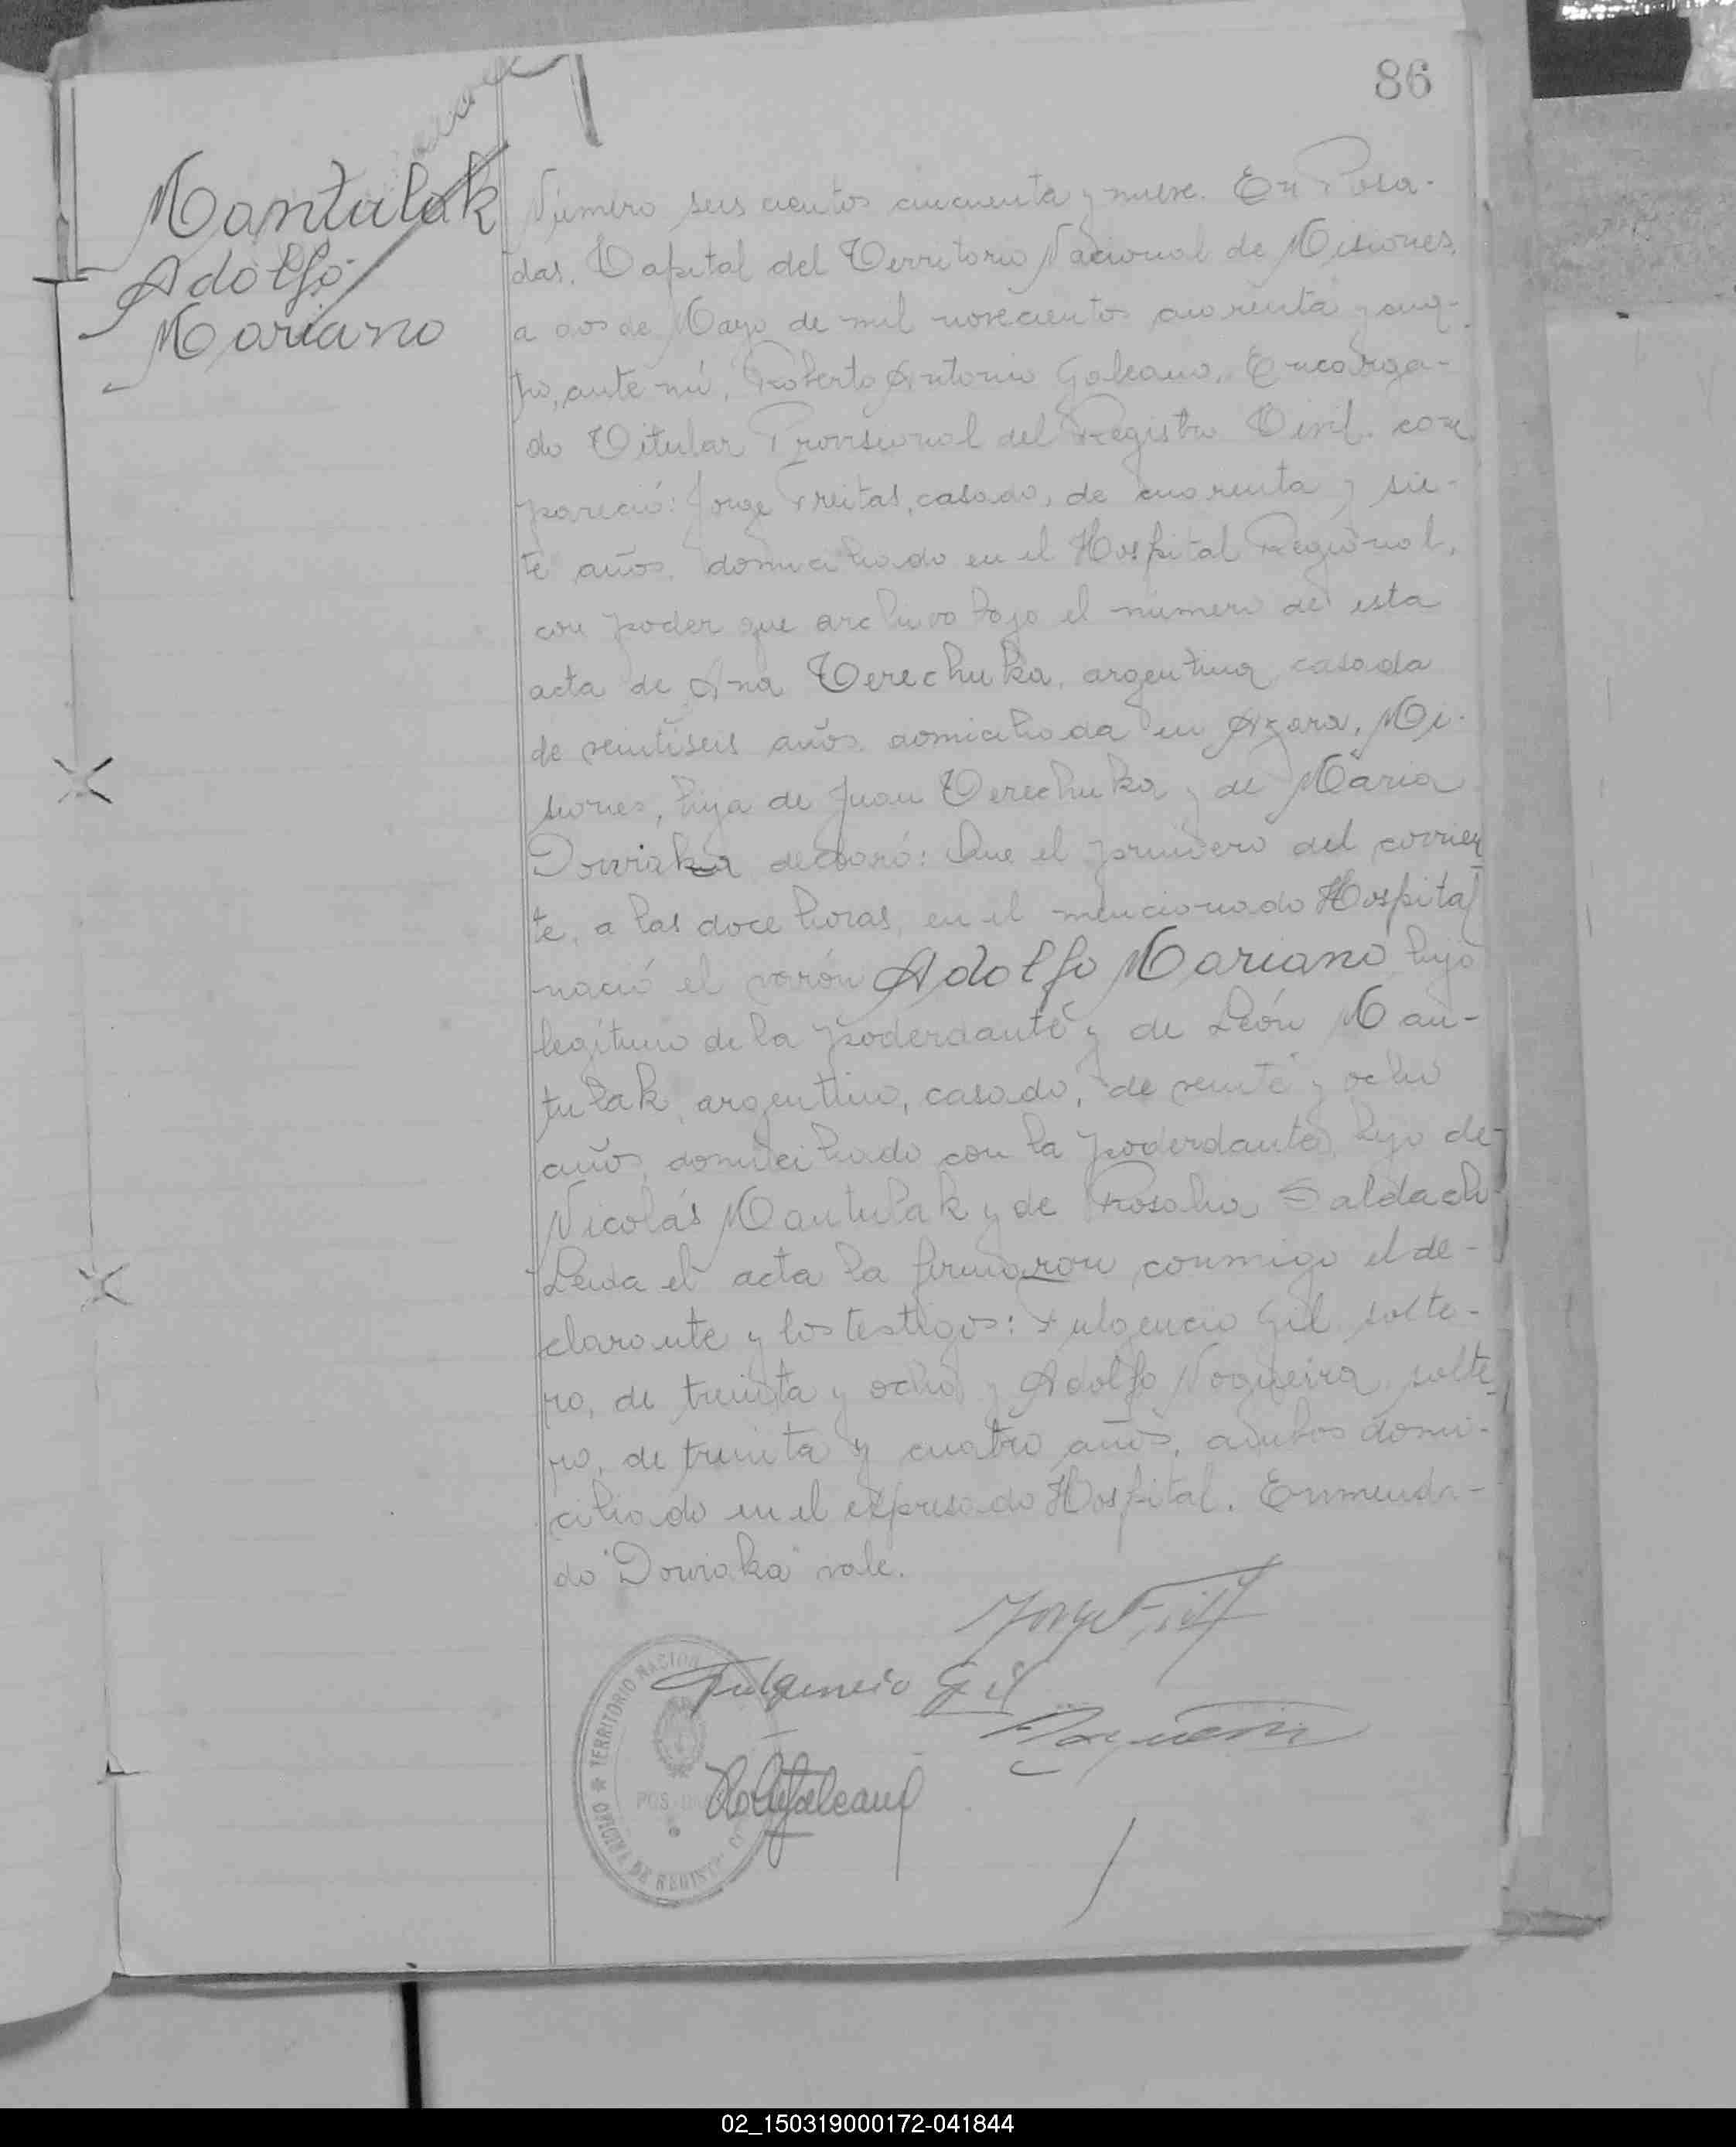 86
Mantulak
Adolfo
Mariano
Número seis cientos cincuenta y nueve. En Posa-
das, Capital del Territorio Nacional de Misiones,
a dos de Mayo de mil novecientos cuarenta y cua-
tro, ante mí, Roberto Antonio Galeano, Encarga-
do Titular Provisional del Registro Civil, com
pareció: Jorge Freitas, casado, de cuarenta y sie-
te años, domiciliado en el Hospital Regional,
con poder que archivo bajo el número de esta
acta de Ana Terechuka, argentina, casada
de veintiseis años, domiciliada en Azara, Mi-
siones, hija de Juan Terechuka y de María
Dowiaka declaró: Que el primero del corrien
te, a las doce horas, en el mencionado Hospital
nació el varón Adolfo Mariano, hijo
legítimo de la poderdante y de León Man-
tulak, argentino, casado, de veinte y ocho
años, domiciliado con la poderdante, hijo de
Nicolás Mantulak y de Rosalia Saldach
Leida el acta la firmaron conmigo el de-
clarante y los testigos: Fulgencio Gil, solte-
ro, de treinta y ocho y Adolfo Nogueira, solte
ro, de treinta y cuatro años, ambos domi-
ciliado en el expresado Hospital. Enmenda-
do "Dowiaka" vale.
Fulgencio Gil
TERRITORIO NACION
OFICINA DE REGIST
02_150319000172-041844